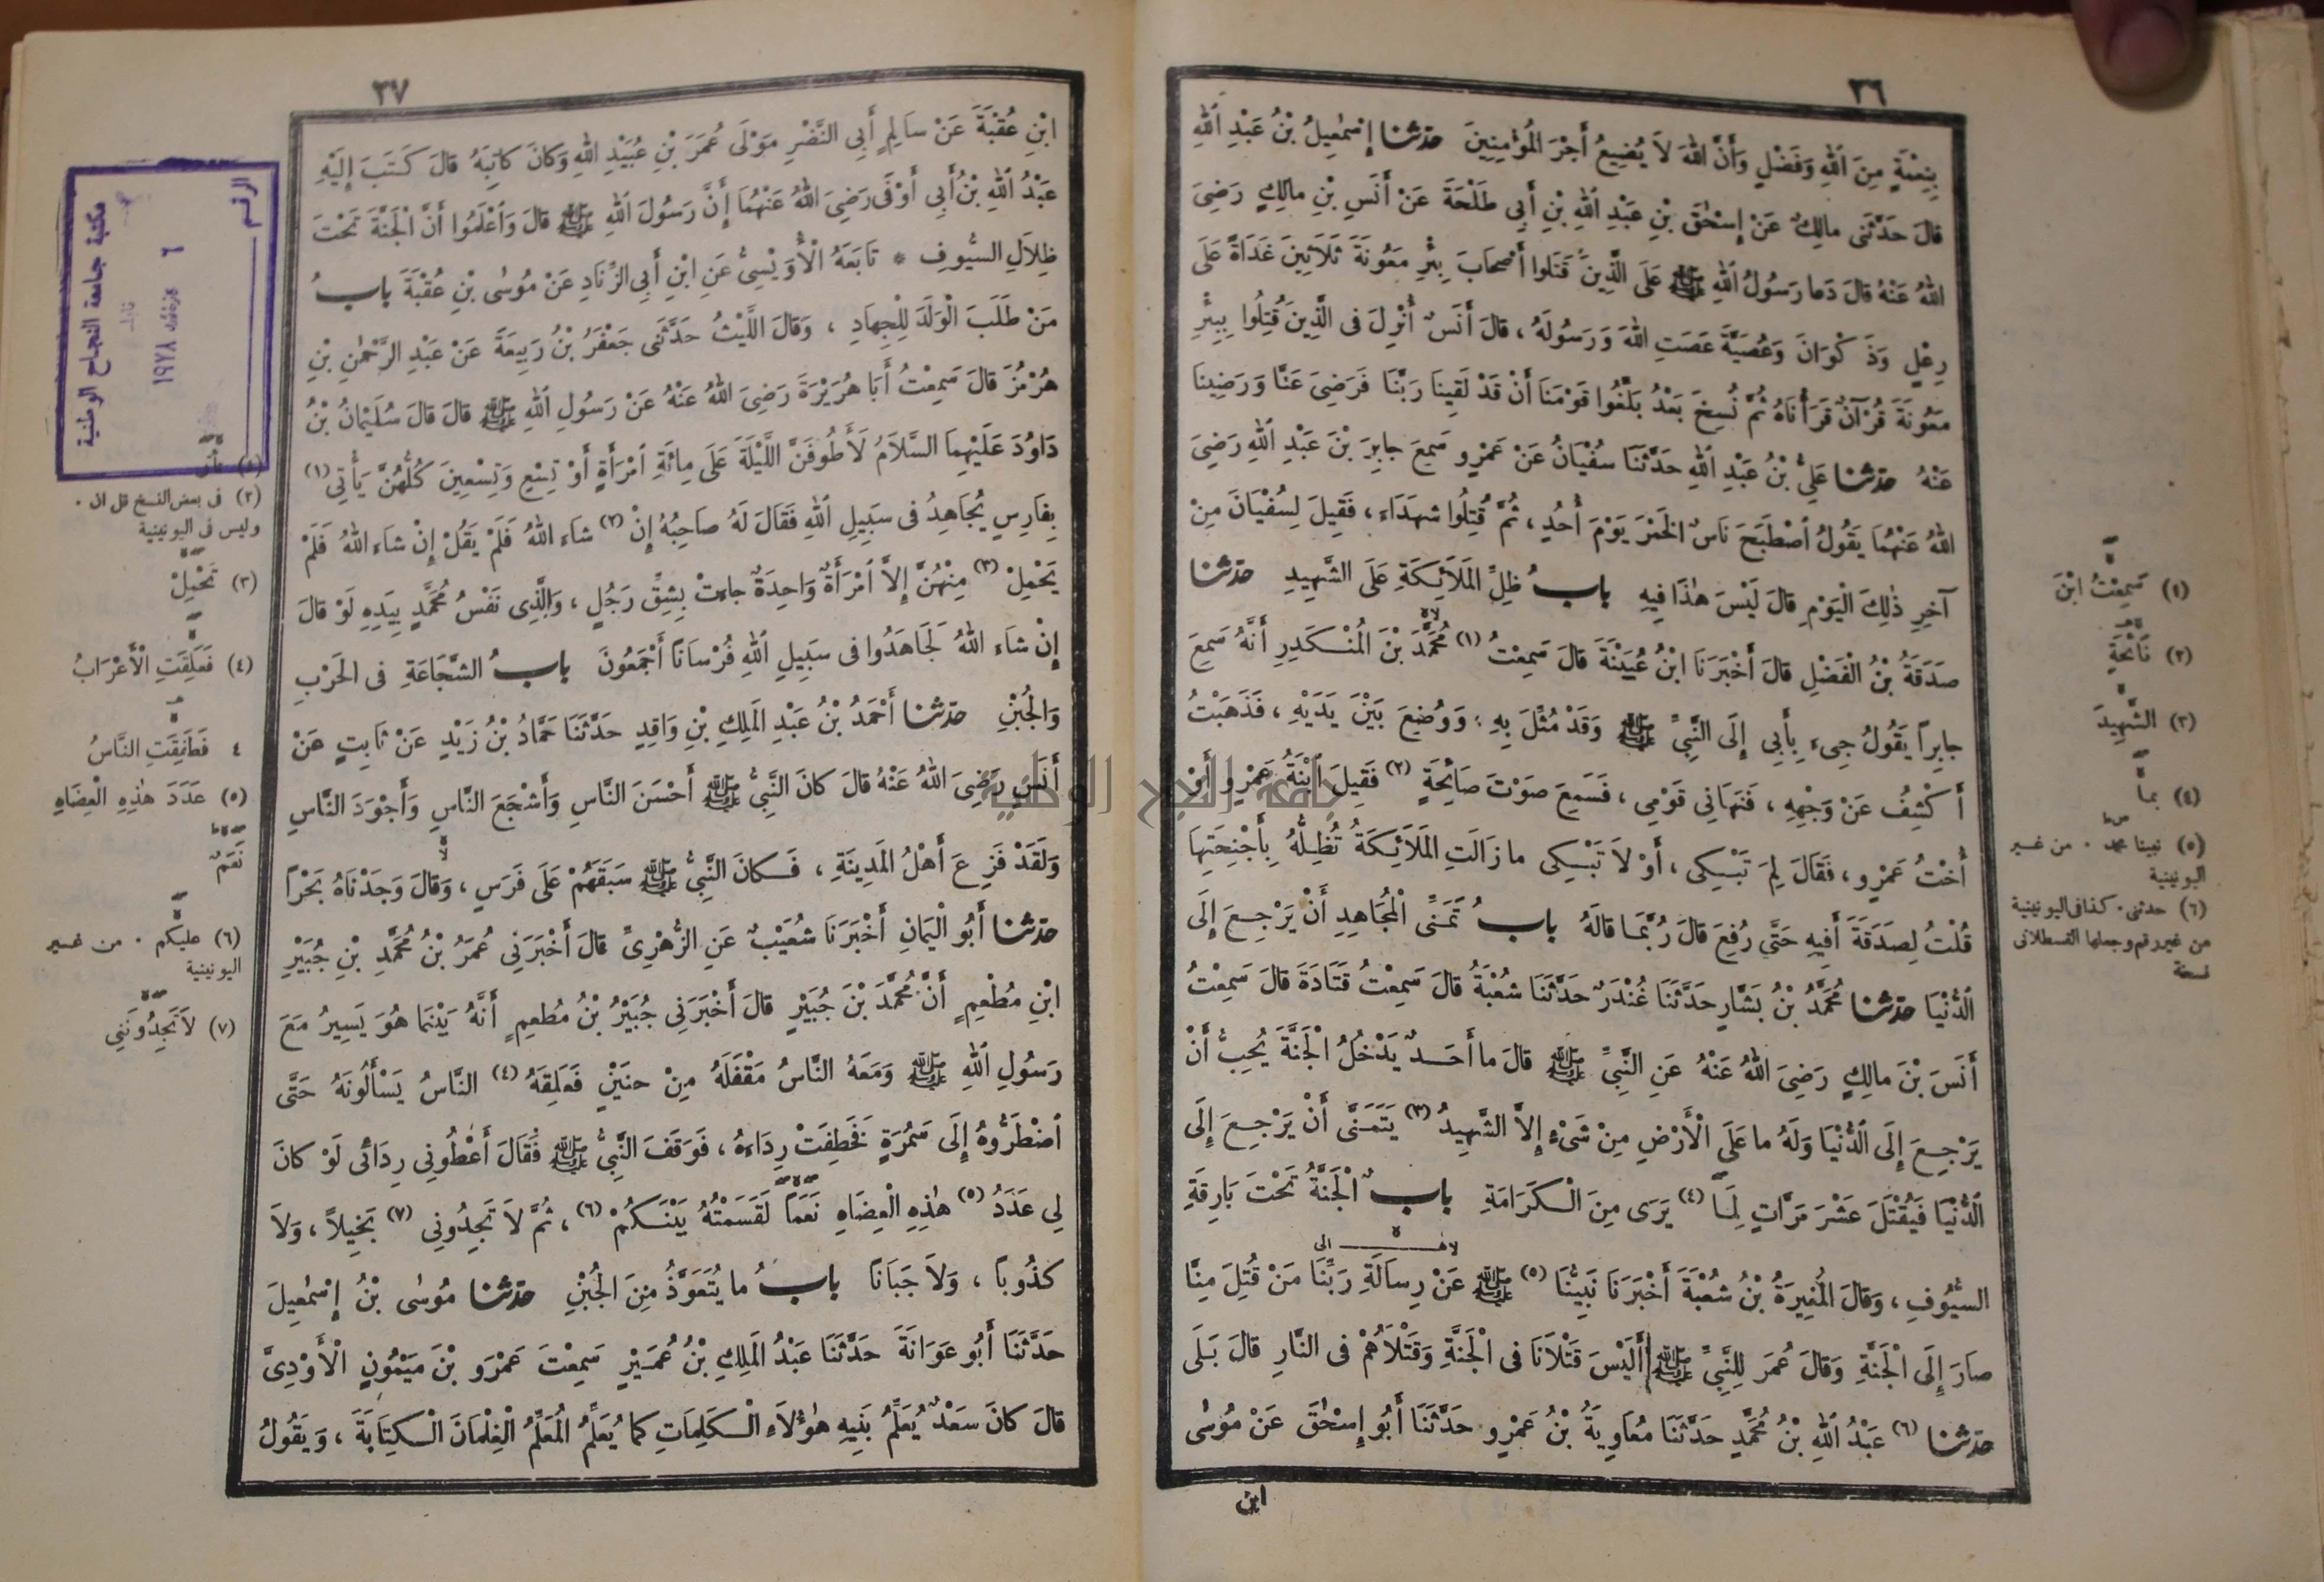 ٣٦
بِنِعْمَةٍ مِنَ اللهِ وَفَضْلٍ وَأَنَّ اللهَ لاَ يُضِيعُ أَجْرَ الْمُؤْمِنِينَ حَدَّثَنَا إِسْمٰعِيلُ بْنُ عَبْدِ اللهِ
قَالَ حَدَّثَنِى مالِكٌ عَنْ إِسْحٰقَ بْنِ عَبْدِ اللهِ بْنِ أَبِي طَلْحَةَ عَنْ أَنَسِ بْنِ مالِكٍ رَضِىَ
اللهُ عَنْهُ قَالَ دَعا رَسُولُ اللهِ ﷺ عَلَى الَّذِينَ قَتَلُوا أَصْحَابَ بِئْرِ مَعُونَةَ ثَلاَثِينَ غَدَاةً عَلَى
رِعْلٍ وَذَكْوَانَ وَعُصَيَّةَ عَصَتِ اللهَ وَرَسُولَهُ ، قالَ أَنَسٌ أُنْزِلَ فى الَّذِينَ قُتِلُوا بِبِئْرِ
مَعُونَةَ قُرْآنٌ قَرَأْنَاهُ ثُمَّ نُسِخَ بَعْدُ بَلِّغُوا قَوْمَنَا أَنْ قَدْ لَقِينَا رَبَّنَا فَرَضِىَ عَنَّا وَرَضِينَا
عَنْهُ حَدَّثَنَا عَلِىُّ بْنُ عَبْدِ اللهِ حَدَّثَنَا سُفْيَانُ عَنْ عَمْرٍو سَمِعَ جابِرَ بْنَ عَبْدِ اللهِ رَضِىَ
اللهُ عَنْهُمَا يَقُولُ اصْطَبَحَ نَاسٌ الخَمْرَ يَوْمَ أُحُدٍ ، ثُمَّ قُتِلُوا شُهَدَاءَ ، فَقِيلَ لِسُفْيَانَ مِنْ
آخِرِ ذٰلِكَ الْيَوْمِ قالَ لَيْسَ هٰذَا فِيهِ بابُ ظِلِّ المَلاَئِكَةِ عَلَى الشَّهِيدِ حَدَّثَنَا
صَدَقَةُ بْنُ الْفَضْلِ قالَ أَخْبَرَنَا ابْنُ عُيَيْنَةَ قالَ سَمِعْتُ (١) مُحَمَّدَ بْنَ المُنْكَدِرِ أَنَّهُ سَمِعَ
جابِراً يَقُولُ جِىءَ بِأَبِي إِلَى النَّبِيِّ ﷺ وَقَدْ مُثِّلَ بِهِ ، وَوُضِعَ بَيْنَ يَدَيْهِ ، فَذَهَبْتُ
أَكْشِفُ عَنْ وَجْهِهِ ، فَنَهَانِي قَوْمِى ، فَسَمِعَ صَوْتَ صَائِحَةٍ (٢) فَقِيلَ ابْنَةُ عَمْرٍو أَوْ
أُخْتُ عَمْرٍو ، فَقَالَ لِمَ تَبْكِى ، أَوْ لاَ تَبْكِى ما زَالَتِ المَلاَئِكَةُ تُظِلُّهُ بِأَجْنِحَتِهَا
قُلْتُ لِصَدَقَةَ أَفِيهِ حَتَّى رُفِعَ قالَ رُبَّمَا قالَهُ بابُ تَمَنِّى الْمُجَاهِدِ أَنْ يَرْجِعَ إِلَى
الدُّنْيَا حَدَّثَنَا مُحَمَّدُ بْنُ بَشَّارٍ حَدَّثَنَا غُنْدَرٌ حَدَّثَنَا شُعْبَةُ قالَ سَمِعْتُ قَتَادَةَ قالَ سَمِعْتُ
أَنَسَ بْنَ مالِكٍ رَضِىَ اللهُ عَنْهُ عَنِ النَّبِيِّ ﷺ قالَ ما أَحَدٌ يَدْخُلُ الْجَنَّةَ يُحِبُّ أَنْ
يَرْجِعَ إِلَى الدُّنْيَا وَلَهُ ما عَلَى الْأَرْضِ مِنْ شَىْءٍ إِلاَّ الشَّهِيدُ (٣) يَتَمَنَّى أَنْ يَرْجِعَ إِلَى
الدُّنْيَا فَيُقْتَلَ عَشْرَ مَرَّاتٍ لِمَا (٤) يَرَى مِنَ الْكَرَامَةِ بابٌ الْجَنَّةُ تَحْتَ بَارِقَةِ
السُّيُوفِ ، وَقالَ الْمُغِيرَةُ بْنُ شُعْبَةَ أَخْبَرَنَا نَبِيُّنَا (٥) ﷺ عَنْ رِسَالَةِ رَبِّنَا مَنْ قُتِلَ مِنَّا
صَارَ إِلَى الْجَنَّةِ وَقالَ عُمَرُ لِلنَّبِيِّ ﷺ أَلَيْسَ قَتْلاَنَا فى الْجَنَّةِ وَقَتْلاَهُمْ فى النَّارِ قالَ بَلَى
حَدَّثَنَا (٦) عَبْدُ اللهِ بْنُ مُحَمَّدٍ حَدَّثَنَا مُعَاوِيَةُ بْنُ عَمْرٍو حَدَّثَنَا أَبُو إِسْحٰقَ عَنْ مُوسٰى
ابن
(١) سَمِعْتُ ابْنَ
(٢) نَائِحَةٍ
(٣) الشَّهِيدَ
(٤) بما
(٥) نبينا محمد . من غير
اليونينية
(٦) حدثنى . كذا فى اليونينية
من غير رقم وجعلها القسطلانى
نسخة
٣٧
ابْنِ عُقْبَةَ عَنْ سَالِمٍ أَبِي النَّضْرِ مَوْلَى عُمَرَ بْنِ عُبَيْدِ اللهِ وَكانَ كاتِبَهُ قالَ كَتَبَ إِلَيْهِ
عَبْدُ اللهِ بْنُ أَبِي أَوْفَى رَضِىَ اللهُ عَنْهُمَا إِنَّ رَسُولَ اللهِ ﷺ قالَ وَاعْلَمُوا أَنَّ الْجَنَّةَ تَحْتَ
ظِلاَلِ السُّيُوفِ * تَابَعَهُ الْأُوَيْسِىُّ عَنِ ابْنِ أَبِي الزِّنَادِ عَنْ مُوسٰى بْنِ عُقْبَةَ بابُ
مَنْ طَلَبَ الْوَلَدَ لِلْجِهَادِ ، وَقالَ اللَّيْثُ حَدَّثَنِى جَعْفَرُ بْنُ رَبِيعَةَ عَنْ عَبْدِ الرَّحْمٰنِ بْنِ
هُرْمُزَ قالَ سَمِعْتُ أَبَا هُرَيْرَةَ رَضِىَ اللهُ عَنْهُ عَنْ رَسُولِ اللهِ ﷺ قالَ قالَ سُلَيْمَانُ بْنُ
دَاوُدَ عَلَيْهِمَا السَّلاَمُ لَأَطُوفَنَّ اللَّيْلَةَ عَلَى مِائَةِ امْرَأَةٍ أَوْ تِسْعٍ وَتِسْعِينَ كُلُّهُنَّ يَأْتِي (١)
بِفَارِسٍ يُجَاهِدُ فى سَبِيلِ اللهِ فَقَالَ لَهُ صَاحِبُهُ إِنْ (٢) شَاءَ اللهُ فَلَمْ يَقُلْ إِنْ شَاءَ اللهُ فَلَمْ
يَحْمِلْ (٣) مِنْهُنَّ إِلاَّ امْرَأَةٌ وَاحِدَةٌ جاءَتْ بِشِقِّ رَجُلٍ ، وَالَّذِى نَفْسُ مُحَمَّدٍ بِيَدِهِ لَوْ قالَ
إِنْ شَاءَ اللهُ لَجَاهَدُوا فى سَبِيلِ اللهِ فُرْسَانًا أَجْمَعُونَ بابُ الشَّجَاعَةِ فى الحَرْبِ
وَالْجُبْنِ حَدَّثَنَا أَحْمَدُ بْنُ عَبْدِ المَلِكِ بْنِ وَاقِدٍ حَدَّثَنَا حَمَّادُ بْنُ زَيْدٍ عَنْ ثَابِتٍ عَنْ
أَنَسٍ رَضِىَ اللهُ عَنْهُ قالَ كانَ النَّبِىُّ ﷺ أَحْسَنَ النَّاسِ وَأَشْجَعَ النَّاسِ وَأَجْوَدَ النَّاسِ
وَلَقَدْ فَزِعَ أَهْلُ المَدِينَةِ ، فَكانَ النَّبِىُّ ﷺ سَبَقَهُمْ عَلَى فَرَسٍ ، وَقالَ وَجَدْنَاهُ بَحْراً
حَدَّثَنَا أَبُو الْيَمانِ أَخْبَرَنَا شُعَيْبٌ عَنِ الزُّهْرِىِّ قالَ أَخْبَرَنِي عُمَرُ بْنُ مُحَمَّدِ بْنِ جُبَيْرِ
ابْنِ مُطْعِمٍ أَنَّ مُحَمَّدَ بْنَ جُبَيْرٍ قالَ أَخْبَرَنِي جُبَيْرُ بْنُ مُطْعِمٍ أَنَّهُ بَيْنَما هُوَ يَسِيرُ مَعَ
رَسُولِ اللهِ ﷺ وَمَعَهُ النَّاسُ مَقْفَلَهُ مِنْ حُنَيْنٍ فَعَلِقَهُ (٤) النَّاسُ يَسْأَلُونَهُ حَتَّى
اضْطَرُّوهُ إِلَى سَمُرَةٍ فَخَطِفَتْ رِدَاءَهُ ، فَوَقَفَ النَّبِىُّ ﷺ فَقَالَ أَعْطُونِي رِدَائى لَوْ كانَ
لِي عَدَدُ (٥) هٰذِهِ الْعِضَاهِ نَعَمًا لَقَسَمْتُهُ بَيْنَكُمْ (٦) ، ثُمَّ لاَ تَجِدُونِي (٧) بَخِيلاً ، وَلاَ
كَذُوباً ، وَلاَ جَبَانًا بابُ ما يُتَعَوَّذُ مِنَ الْجُبْنِ حَدَّثَنَا مُوسٰى بْنُ إِسْمٰعِيلَ
حَدَّثَنَا أَبُو عَوَانَةَ حَدَّثَنَا عَبْدُ المَلِكِ بْنُ عُمَيْرٍ سَمِعْتُ عَمْرَو بْنَ مَيْمُونٍ الْأَوْدِىَّ
قالَ كانَ سَعْدٌ يُعَلِّمُ بَنِيهِ هٰؤُلاَءِ الْكَلِمَاتِ كما يُعَلِّمُ الْمُعَلِّمُ الْغِلْمَانَ الْكِتَابَةَ ، وَيَقُولُ
الرقم
٦
١٩٧٨
مكتبة جامعة النجاح الوطنية
(٢) فى بعض النسخ قل ان .
وليس فى اليونينية
(٣) تَحْمِلْ
(٤) فَعَلِقَتِ الْأَعْرَابُ
٤ فَطَفِقَتِ النَّاسُ
(٥) عَدَدَ هٰذِهِ الْعِضَاهِ
نَعَمٌ
(٦) عليكم . من غير
اليونينية
(٧) لاَ تَجِدُونَنِي
جامعة النجاح الوطنية